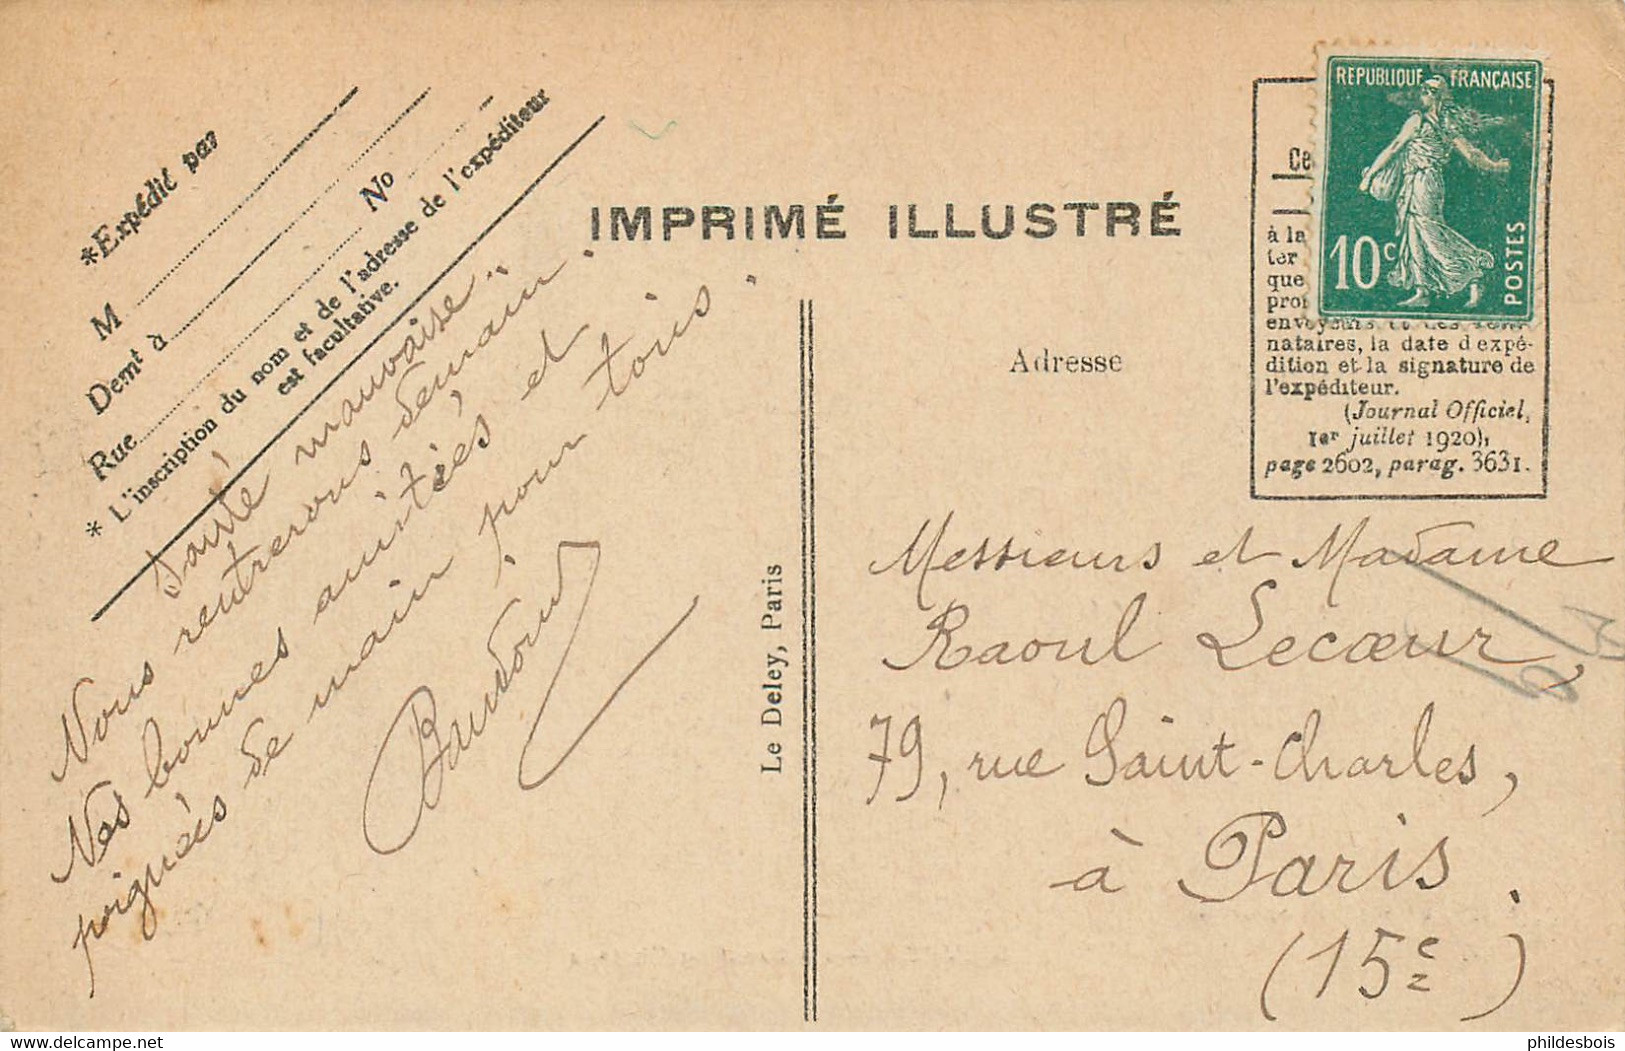 *Expédié par
M
Demt à
Rue
No
* L'inscription du nom et de l'adresse de l'expéditeur
est facultative.
IMPRIMÉ ILLUSTRÉ
Santé mauvaise.
Nous rentrerons demain.
Nos bonnes amitiés et
poignées de main pour tous.
Baudoin
Le Deley, Paris
Adresse
REPUBLIQUE FRANÇAISE
10c
POSTES
Ce
à la
ter
que
pro
envoyeurs et des
nataires, la date d'expé-
dition et la signature de
l'expéditeur.
(Journal Officiel,
1er juillet 1920),
page 2602, parag. 3631.
Messieurs et Madame
Raoul Lecœur,
79, rue Saint-Charles,
à Paris.
(15e)
phildesbois